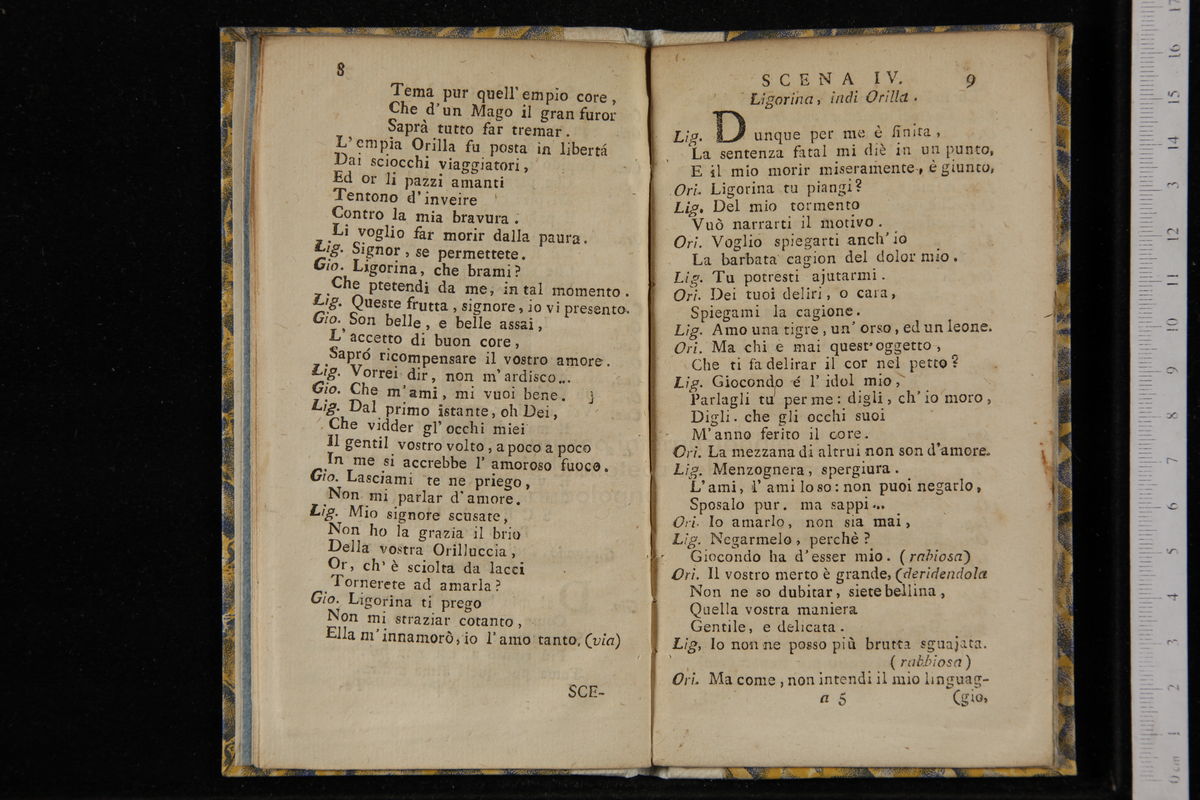 8
Tema pur quell' empio core,
Che d'un Mago il gran furor
Saprà tutto far tremar.
L'empia Orilla fu posta in libertá
Dai sciocchi viaggiatori,
Ed or li pazzi amanti
Tentono d'inveire
Contro la mia bravura.
Li voglio far morir dalla paura.
Lig. Signor, se permettete.
Gio. Ligorina, che brami?
Che ptetendi da me, in tal momento.
Lig. Queste frutta, signore, io vi presento.
Gio. Son belle, e belle assai,
L'accetto di buon core,
Sapró ricompensare il vostro amore.
Lig. Vorrei dir, non m'ardisco...
Gio. Che m'ami, mi vuoi bene. j
Lig. Dal primo istante, oh Dei,
Che vidder gl'occhi miei
Il gentil vostro volto, a poco a poco
In me si accrebbe l'amoroso fuoco.
Gio. Lasciami te ne priego,
Non mi parlar d'amore.
Lig. Mio signore scusate,
Non ho la grazia il brio
Della vostra Orilluccia,
Or, ch'è sciolta da lacci
Tornerete ad amarla?
Gio. Ligorina ti prego
Non mi straziar cotanto,
Ella m'innamorò, io l'amo tanto. (via)
SCE-
SCENA IV. 9
Ligorina, indi Orilla.
Lig. Dunque per me è finita,
La sentenza fatal mi diè in un punto,
E il mio morir miseramente, è giunto,
Ori. Ligorina tu piangi?
Lig. Del mio tormento
Vuò narrarti il motivo.
Ori. Voglio spiegarti anch'io
La barbata cagion del dolor mio.
Lig. Tu potresti ajutarmi.
Ori. Dei tuoi deliri, o cara,
Spiegami la cagione.
Lig. Amo una tigre, un' orso, ed un leone.
Ori. Ma chi e mai quest'oggetto,
Che ti fa delirar il cor nel petto?
Lig. Giocondo é l'idol mio,
Parlagli tu per me: digli, ch'io moro,
Digli. che gli occhi suoi
M'anno ferito il core.
Ori. La mezzana di altrui non son d'amore.
Lig. Menzognera, spergiura.
L'ami, l'ami lo so: non puoi negarlo,
Sposalo pur. ma sappi...
Ori. Io amarlo, non sia mai,
Lig. Negarmelo, perchè?
Giocondo ha d'esser mio. (rabiosa)
Ori. Il vostro merto è grande, (deridendola
Non ne so dubitar, siete bellina,
Quella vostra maniera
Gentile, e delicata.
Lig, Io non ne posso più brutta sguajata.
(rabbiosa)
Ori. Ma come, non intendi il mio linguag-
a 5 (gio,
0 cm 1 2 3 4 5 6 7 8 9 10 11 12 13 14 15 16 17